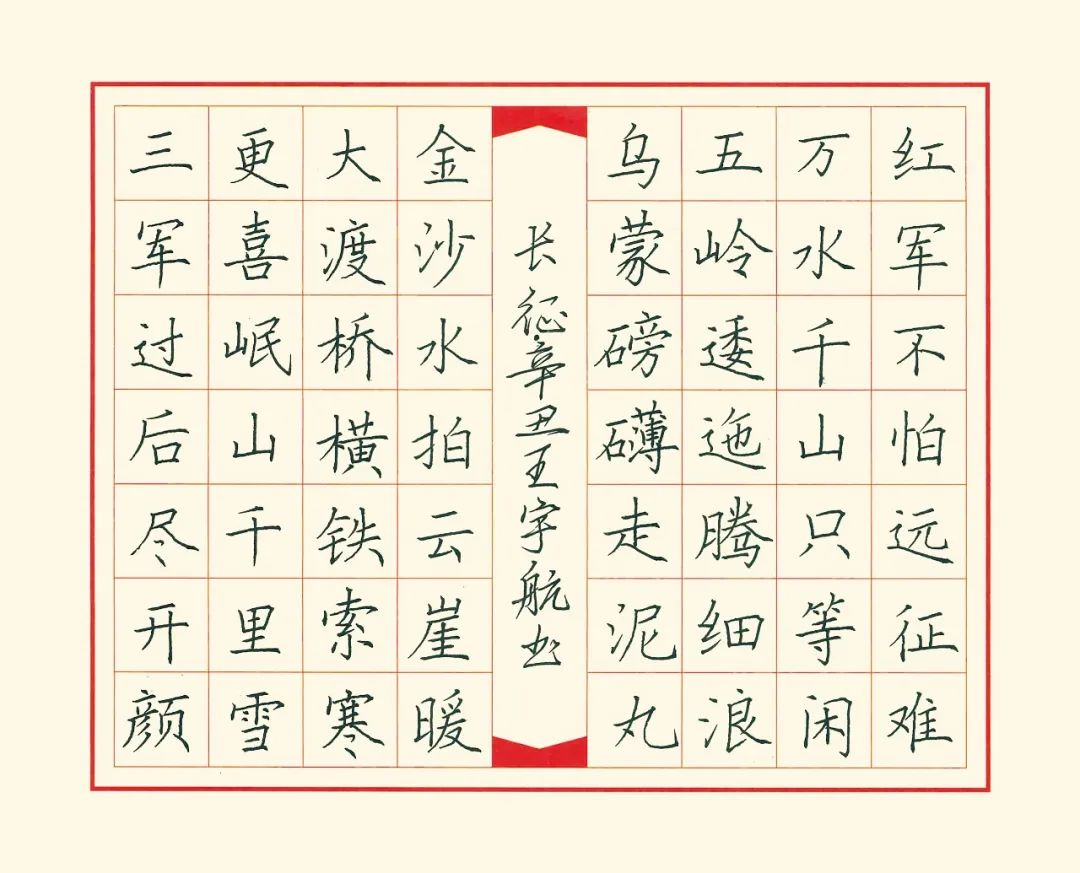 红军不怕远征难
万水千山只等闲
五岭逶迤腾细浪
乌蒙磅礴走泥丸
长征辛丑王宇航书
金沙水拍云崖暖
大渡桥横铁索寒
更喜岷山千里雪
三军过后尽开颜